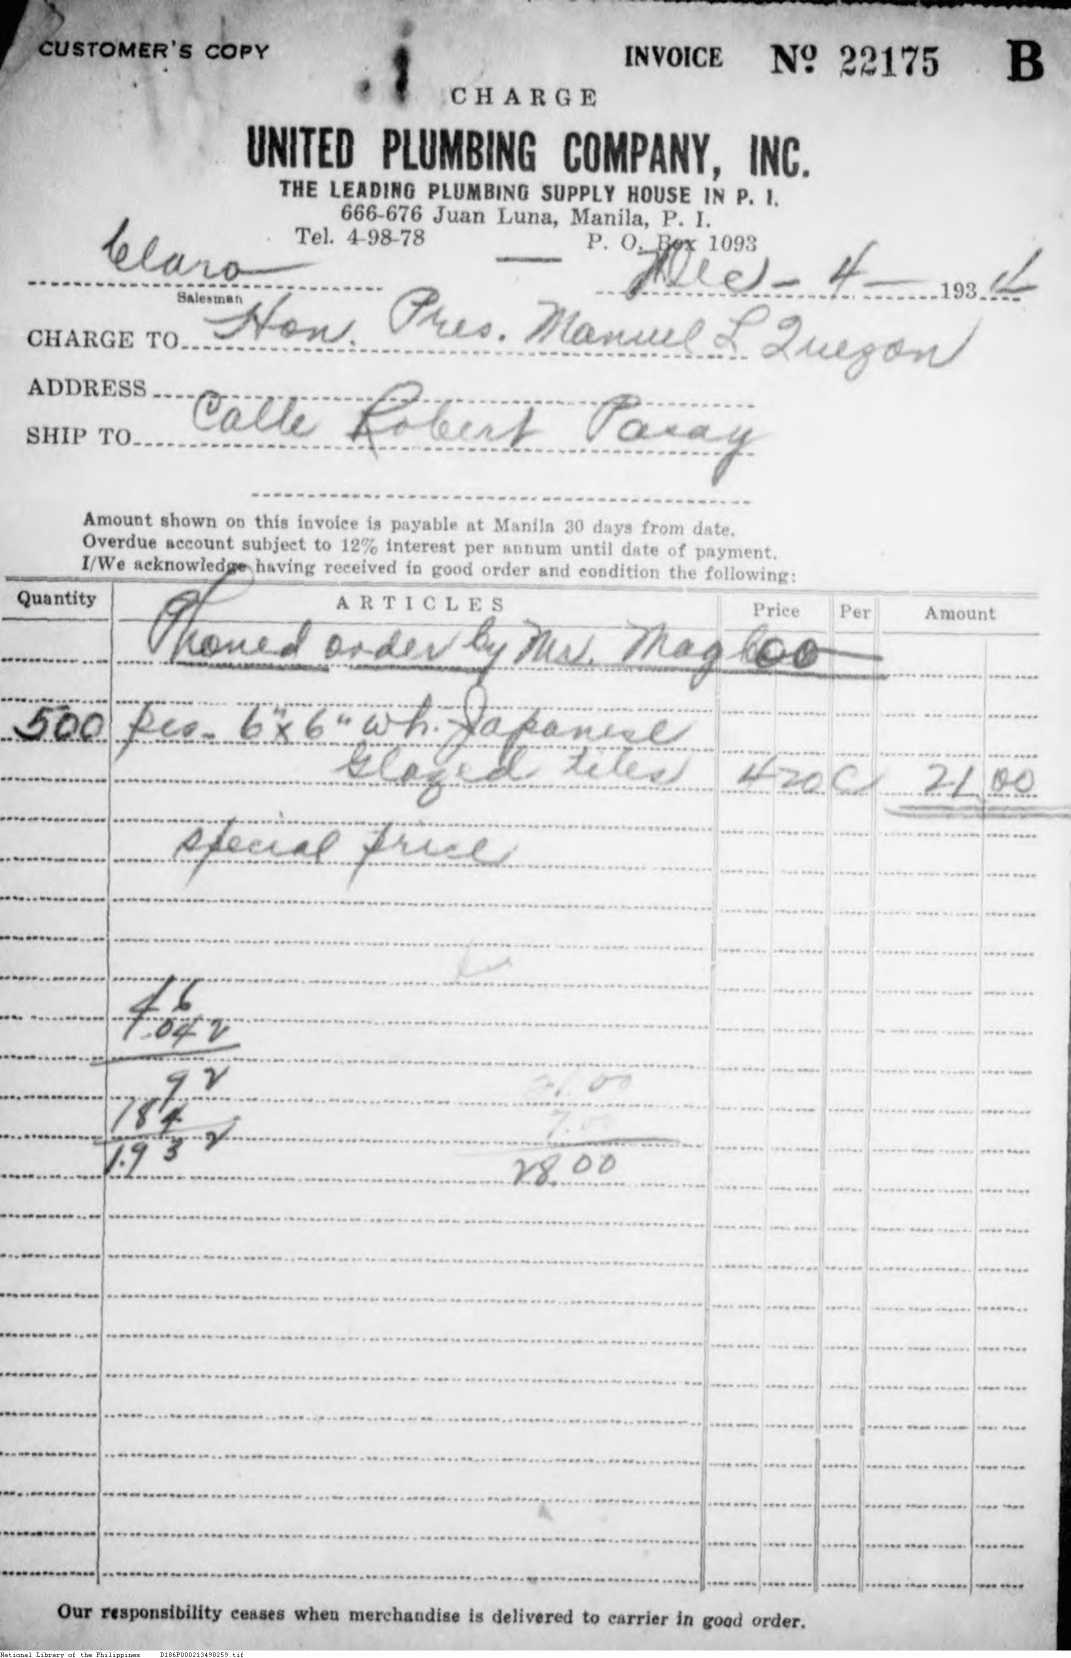 CUSTOMER'S COPY
INVOICE Nº 22175 B
CHARGE
UNITED PLUMBING COMPANY, INC.
THE LEADING PLUMBING SUPPLY HOUSE IN P. I.
666-676 Juan Luna, Manila, P. I.
Tel. 4-98-78 P. O. Box 1093
Claro Dec - 4 - 1934
Salesman
CHARGE TO Hon. Pres. Manuel L Quezon
ADDRESS
SHIP TO Calle Robert Pasay
Amount shown on this invoice is payable at Manila 30 days from date.
Overdue account subject to 12% interest per annum until date of payment.
I/We acknowledge having received in good order and condition the following:
Quantity ARTICLES Price Per Amount
Phoned order by Mr.
500 pcs. 6"x6" wh. Japanese
Glazed tiles 4 20 C 21 00
special price
46
.042
92 21.00
184 7.00
1.932 28.00
Our responsibility ceases when merchandise is delivered to carrier in good order.
National Library of the Philippines D186P000213498259.tif